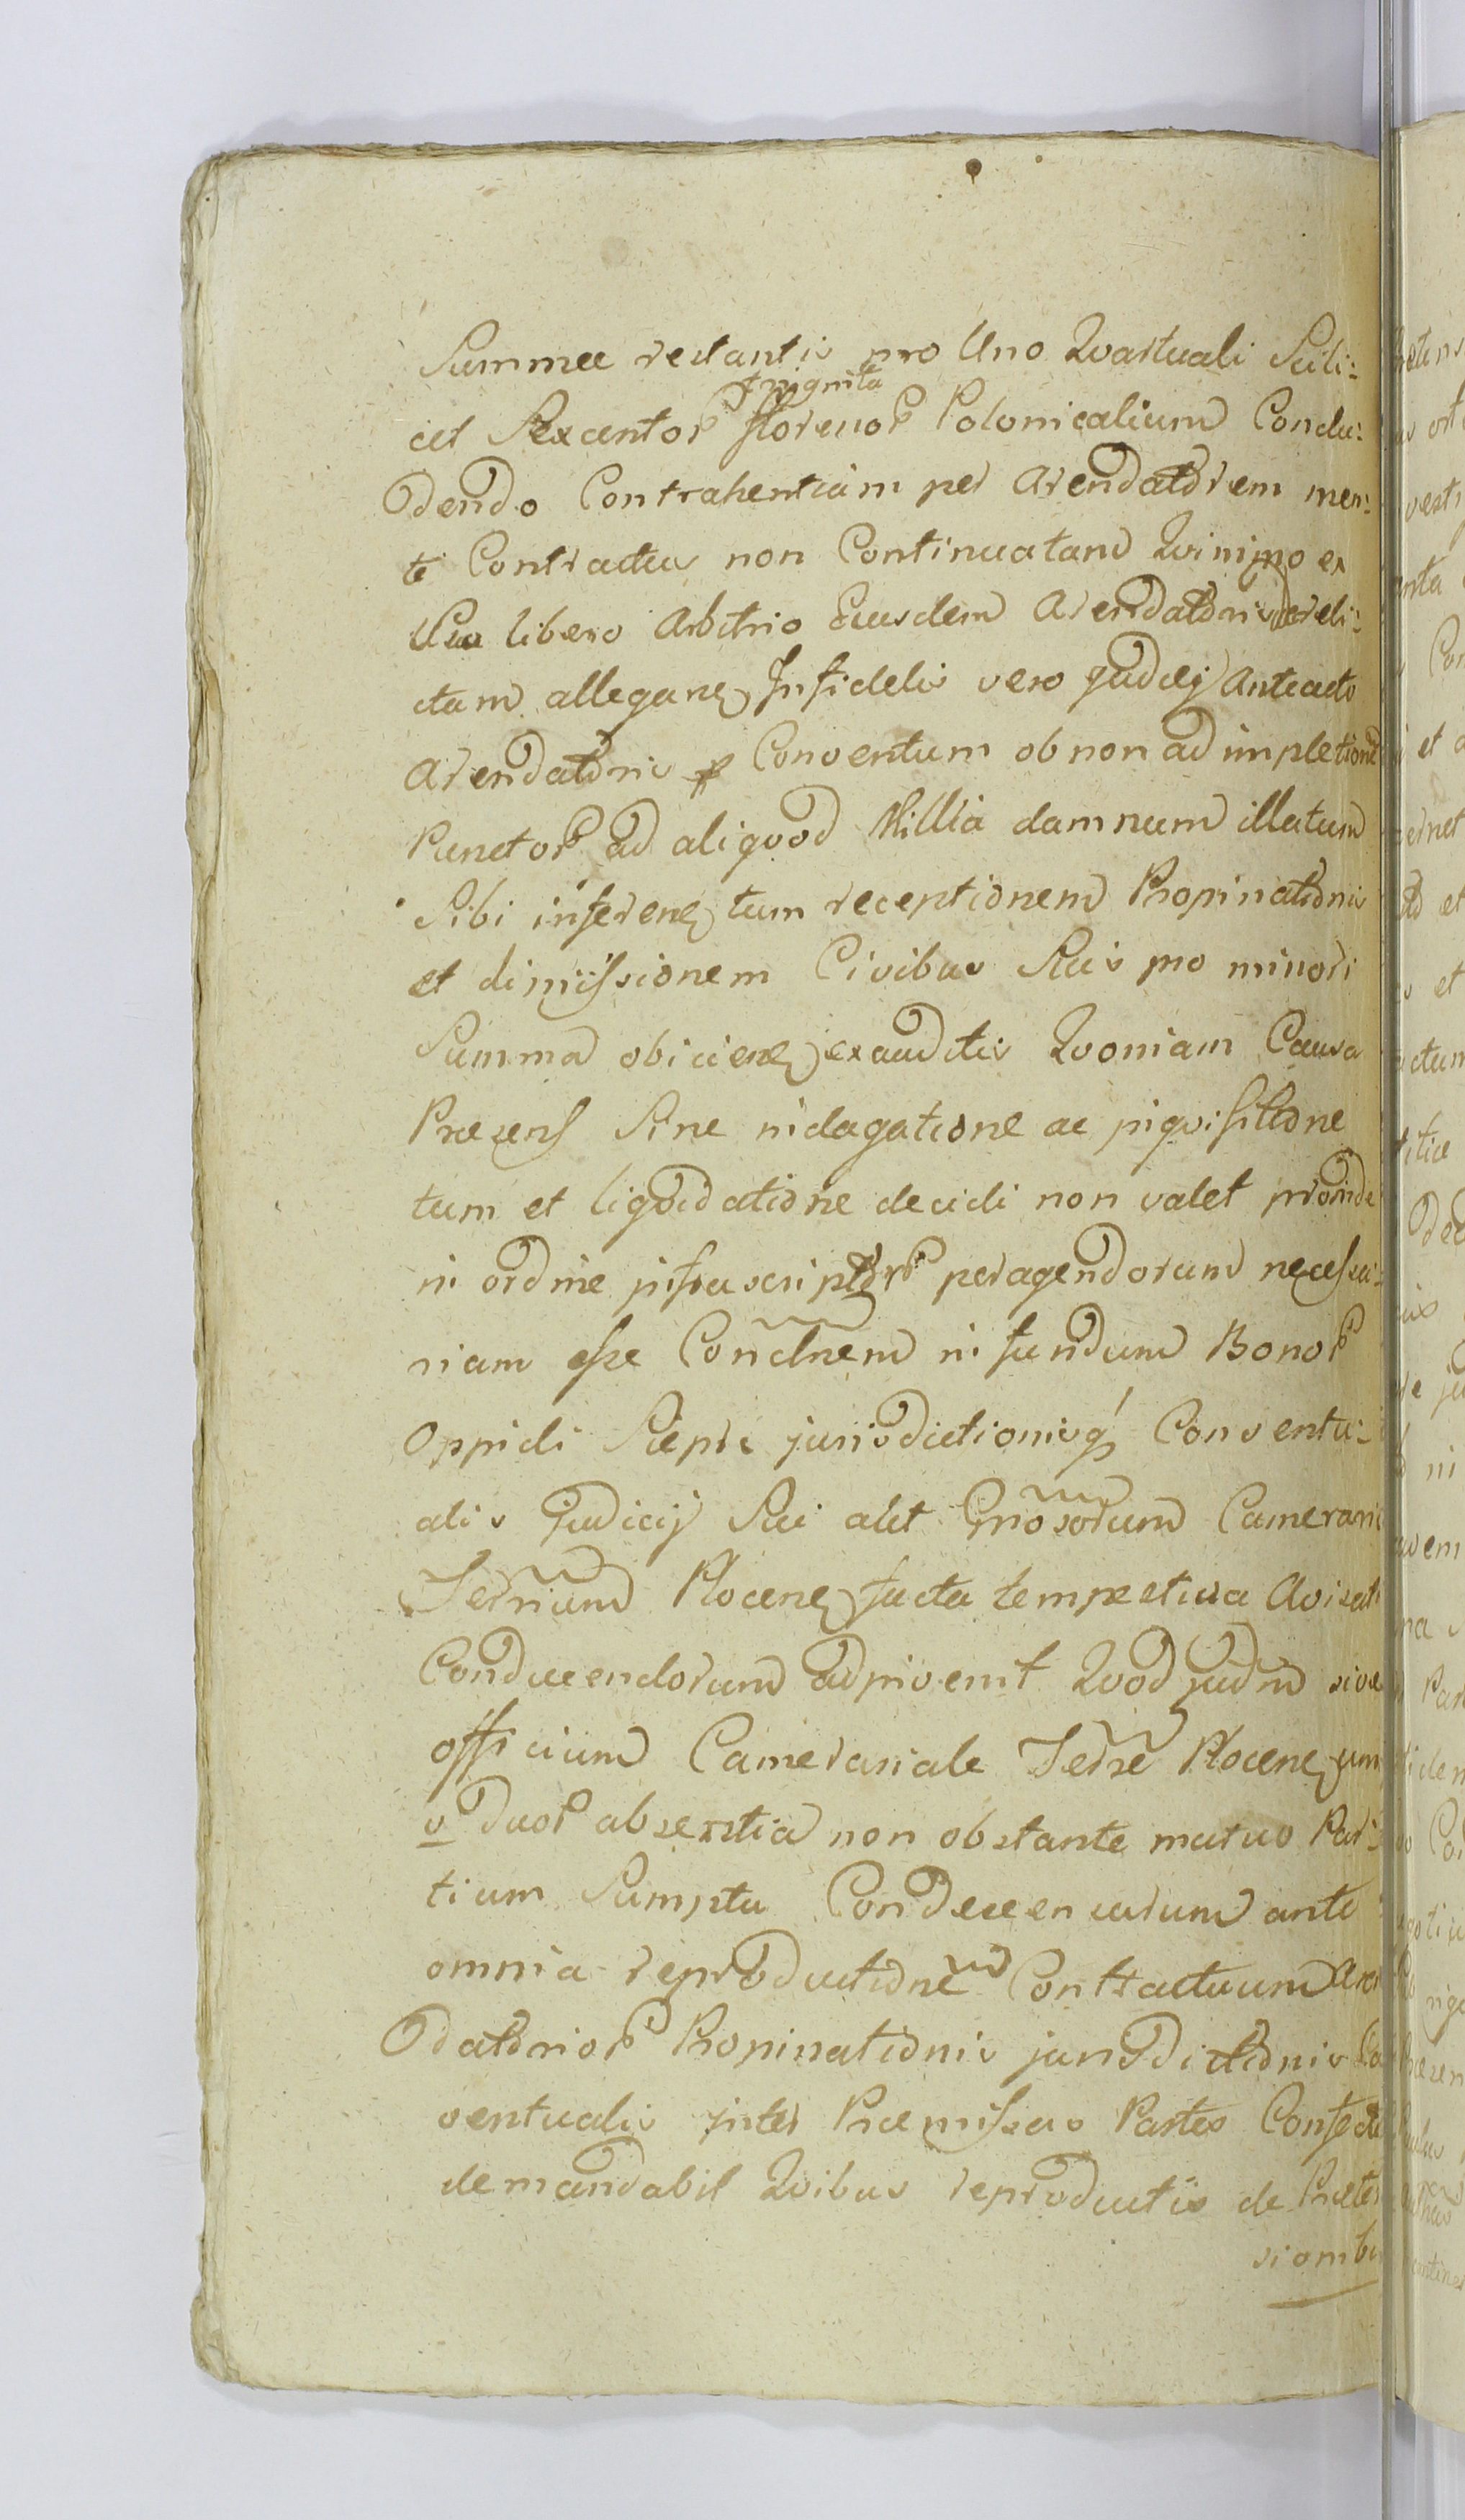 Summae restantis pro Uno Quartuali Scili:
triginta
cet Sexcentor florenor Polonicalium Conclu:
dendo Contrahentiam per Arendatorem men:
te Contractus non Continuatam Quinimo ex
libero Arbitrio Eiusdem Arendatoris dereli:
ctam allegan Infidelis vero Judaei Anteacto
Arendatoris Conventum ob non adimpletion
Punctor ad aliquod Millia damnum illatum
Sibi inferen tum receptionem Propinationis
et dimissionem Civibus Suis pro minori
Summa obicien exauditis Quoniam Causa
Praesens Sine indagatione ac inquisitione
tum et liquidatione decidi non valet proinde
in ordine infrascriptor peragendorum necessa:
riam esse Condnem in fundum Bonor
Oppidi Sieprc jurisdictionisq Conventu:
alis Judicij Sui alit Gnosorum Camerari
Terrium Plocen facta tempestiva Avisati
Conducendorum adinvenit Quod judm sive
officium Camerariale Terre Plocen uni
v duor absentia non obstante mutuo Par:
tium Sumptu Condescensurum ante
omnia reproductione Contractuum Aren
datorior Propinationis jurisdictionis Co
ventualis inter Praemissas Partes Confecto
demandabit Quibus reproductis de Praeten
sionibu